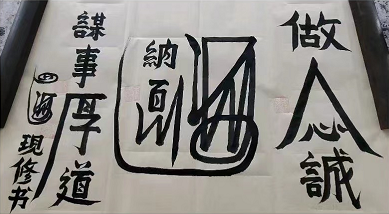 做人心誠
海納百川
謀事厚道
四海現修书